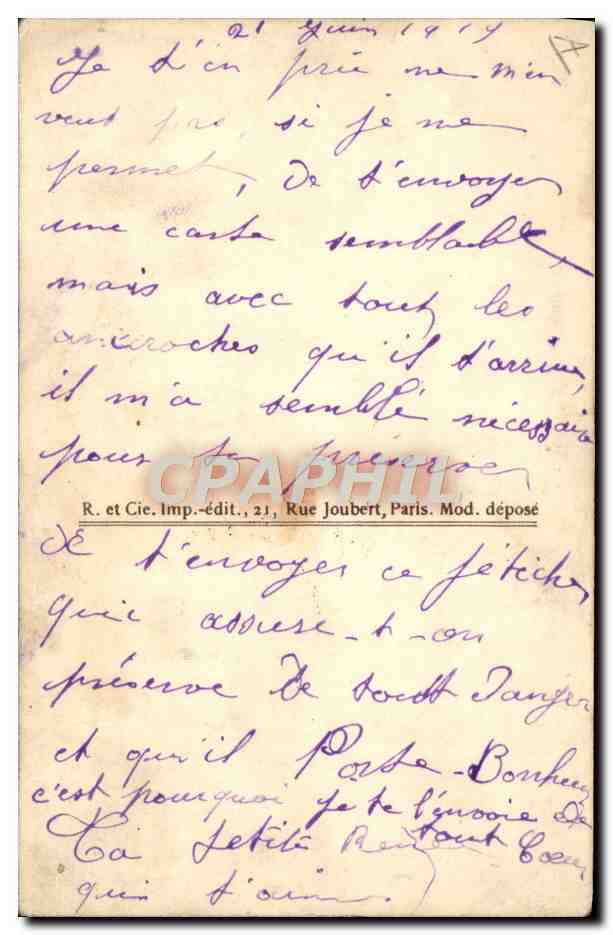 21 Juin 1919
Je t'en prie ne m'en
veut pas, si je me
permet, de t'envoyer
une carte semblable,
mais avec tout les
anicroches qu'il t'arrive,
il m'a semblé nécessaire
pour te préserver
CPAPHIL
R. et Cie. Imp.-édit., 21, Rue Joubert, Paris. Mod. déposé
de t'envoyer ce fétiche
qui assure-t-on
préserve de tout danger
et qu'il Porte-Bonheur
c'est pourquoi je te l'envoie de
tout Coeur
Ta petite
qui t'aime.